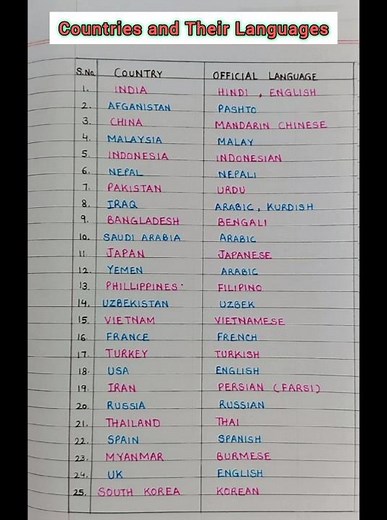 Countries and Their Languages
S.No. COUNTRY OFFICIAL LANGUAGE
1. INDIA HINDI , ENGLISH
2. AFGANISTAN PASHTO
3. CHINA MANDARIN CHINESE
4. MALAYSIA MALAY
5. INDONESIA INDONESIAN
6. NEPAL NEPALI
7. PAKISTAN URDU
8. IRAQ ARABIC, KURDISH
9. BANGLADESH BENGALI
10. SAUDI ARABIA ARABIC
11. JAPAN JAPANESE
12. YEMEN ARABIC
13. PHILLIPPINES FILIPINO
14. UZBEKISTAN UZBEK
15. VIETNAM VIETNAMESE
16. FRANCE FRENCH
17. TURKEY TURKISH
18. USA ENGLISH
19. IRAN PERSIAN (FARSI)
20. RUSSIA RUSSIAN
21. THAILAND THAI
22. SPAIN SPANISH
23. MYANMAR BURMESE
24. UK ENGLISH
25. SOUTH KOREA KOREAN